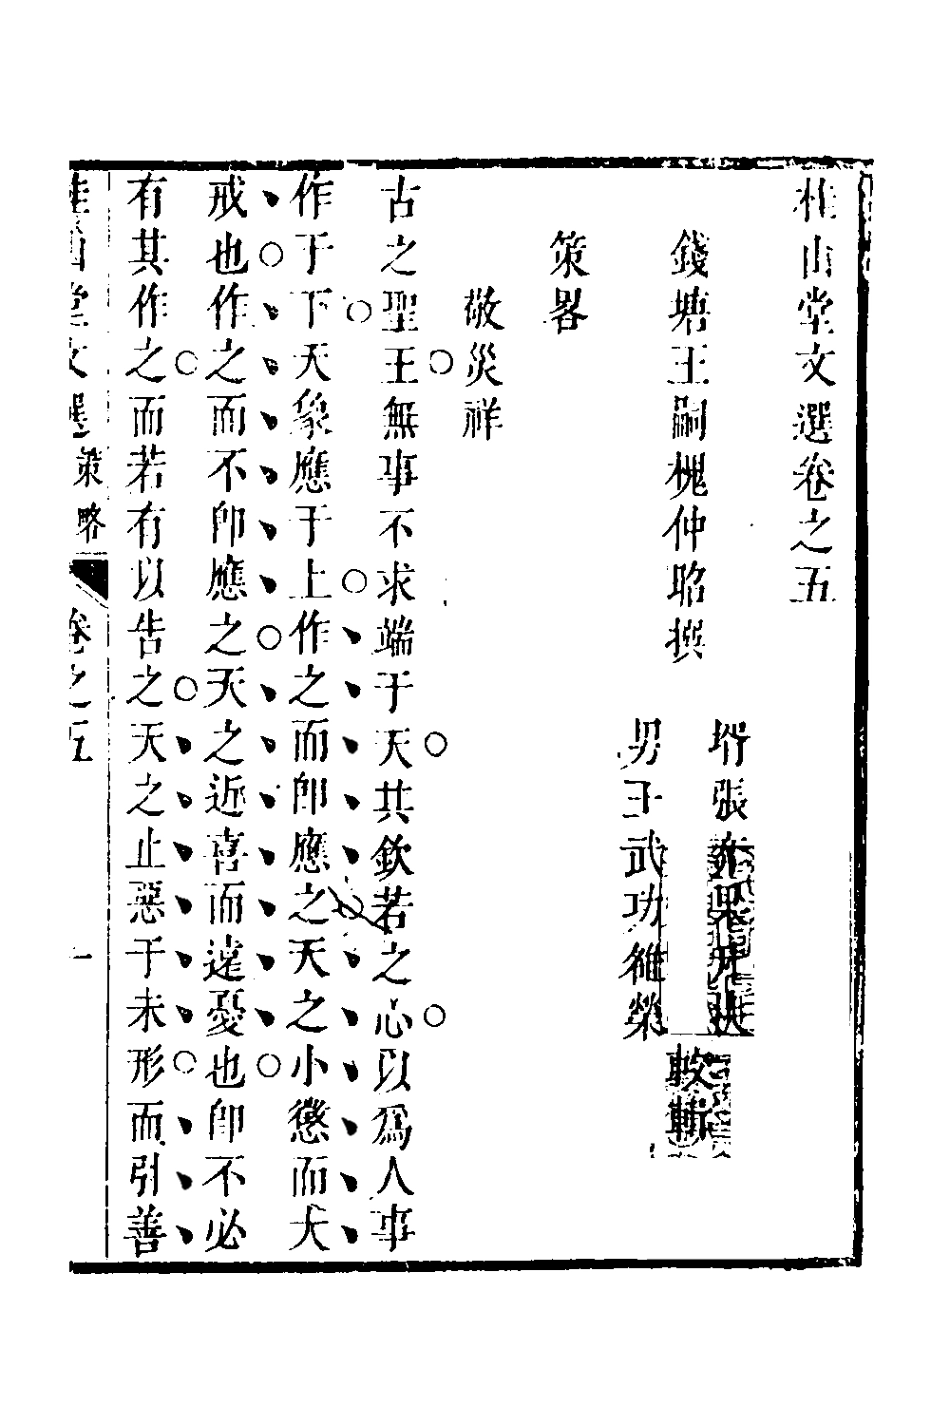 桂山堂文選卷之五
錢塘王嗣槐仲昭撰
壻張
男王武功維榮
較
策畧
敬災祥
古之聖王無事不求端于天共欽若之心以爲人事
作于下天象應于上作之而卽應之天之小懲而大
戒也作之而不卽應之天之近喜而遠憂也卽不必
有其作之而若有以告之天之止惡于未形而引善
桂山堂文選 策略 卷之五 一